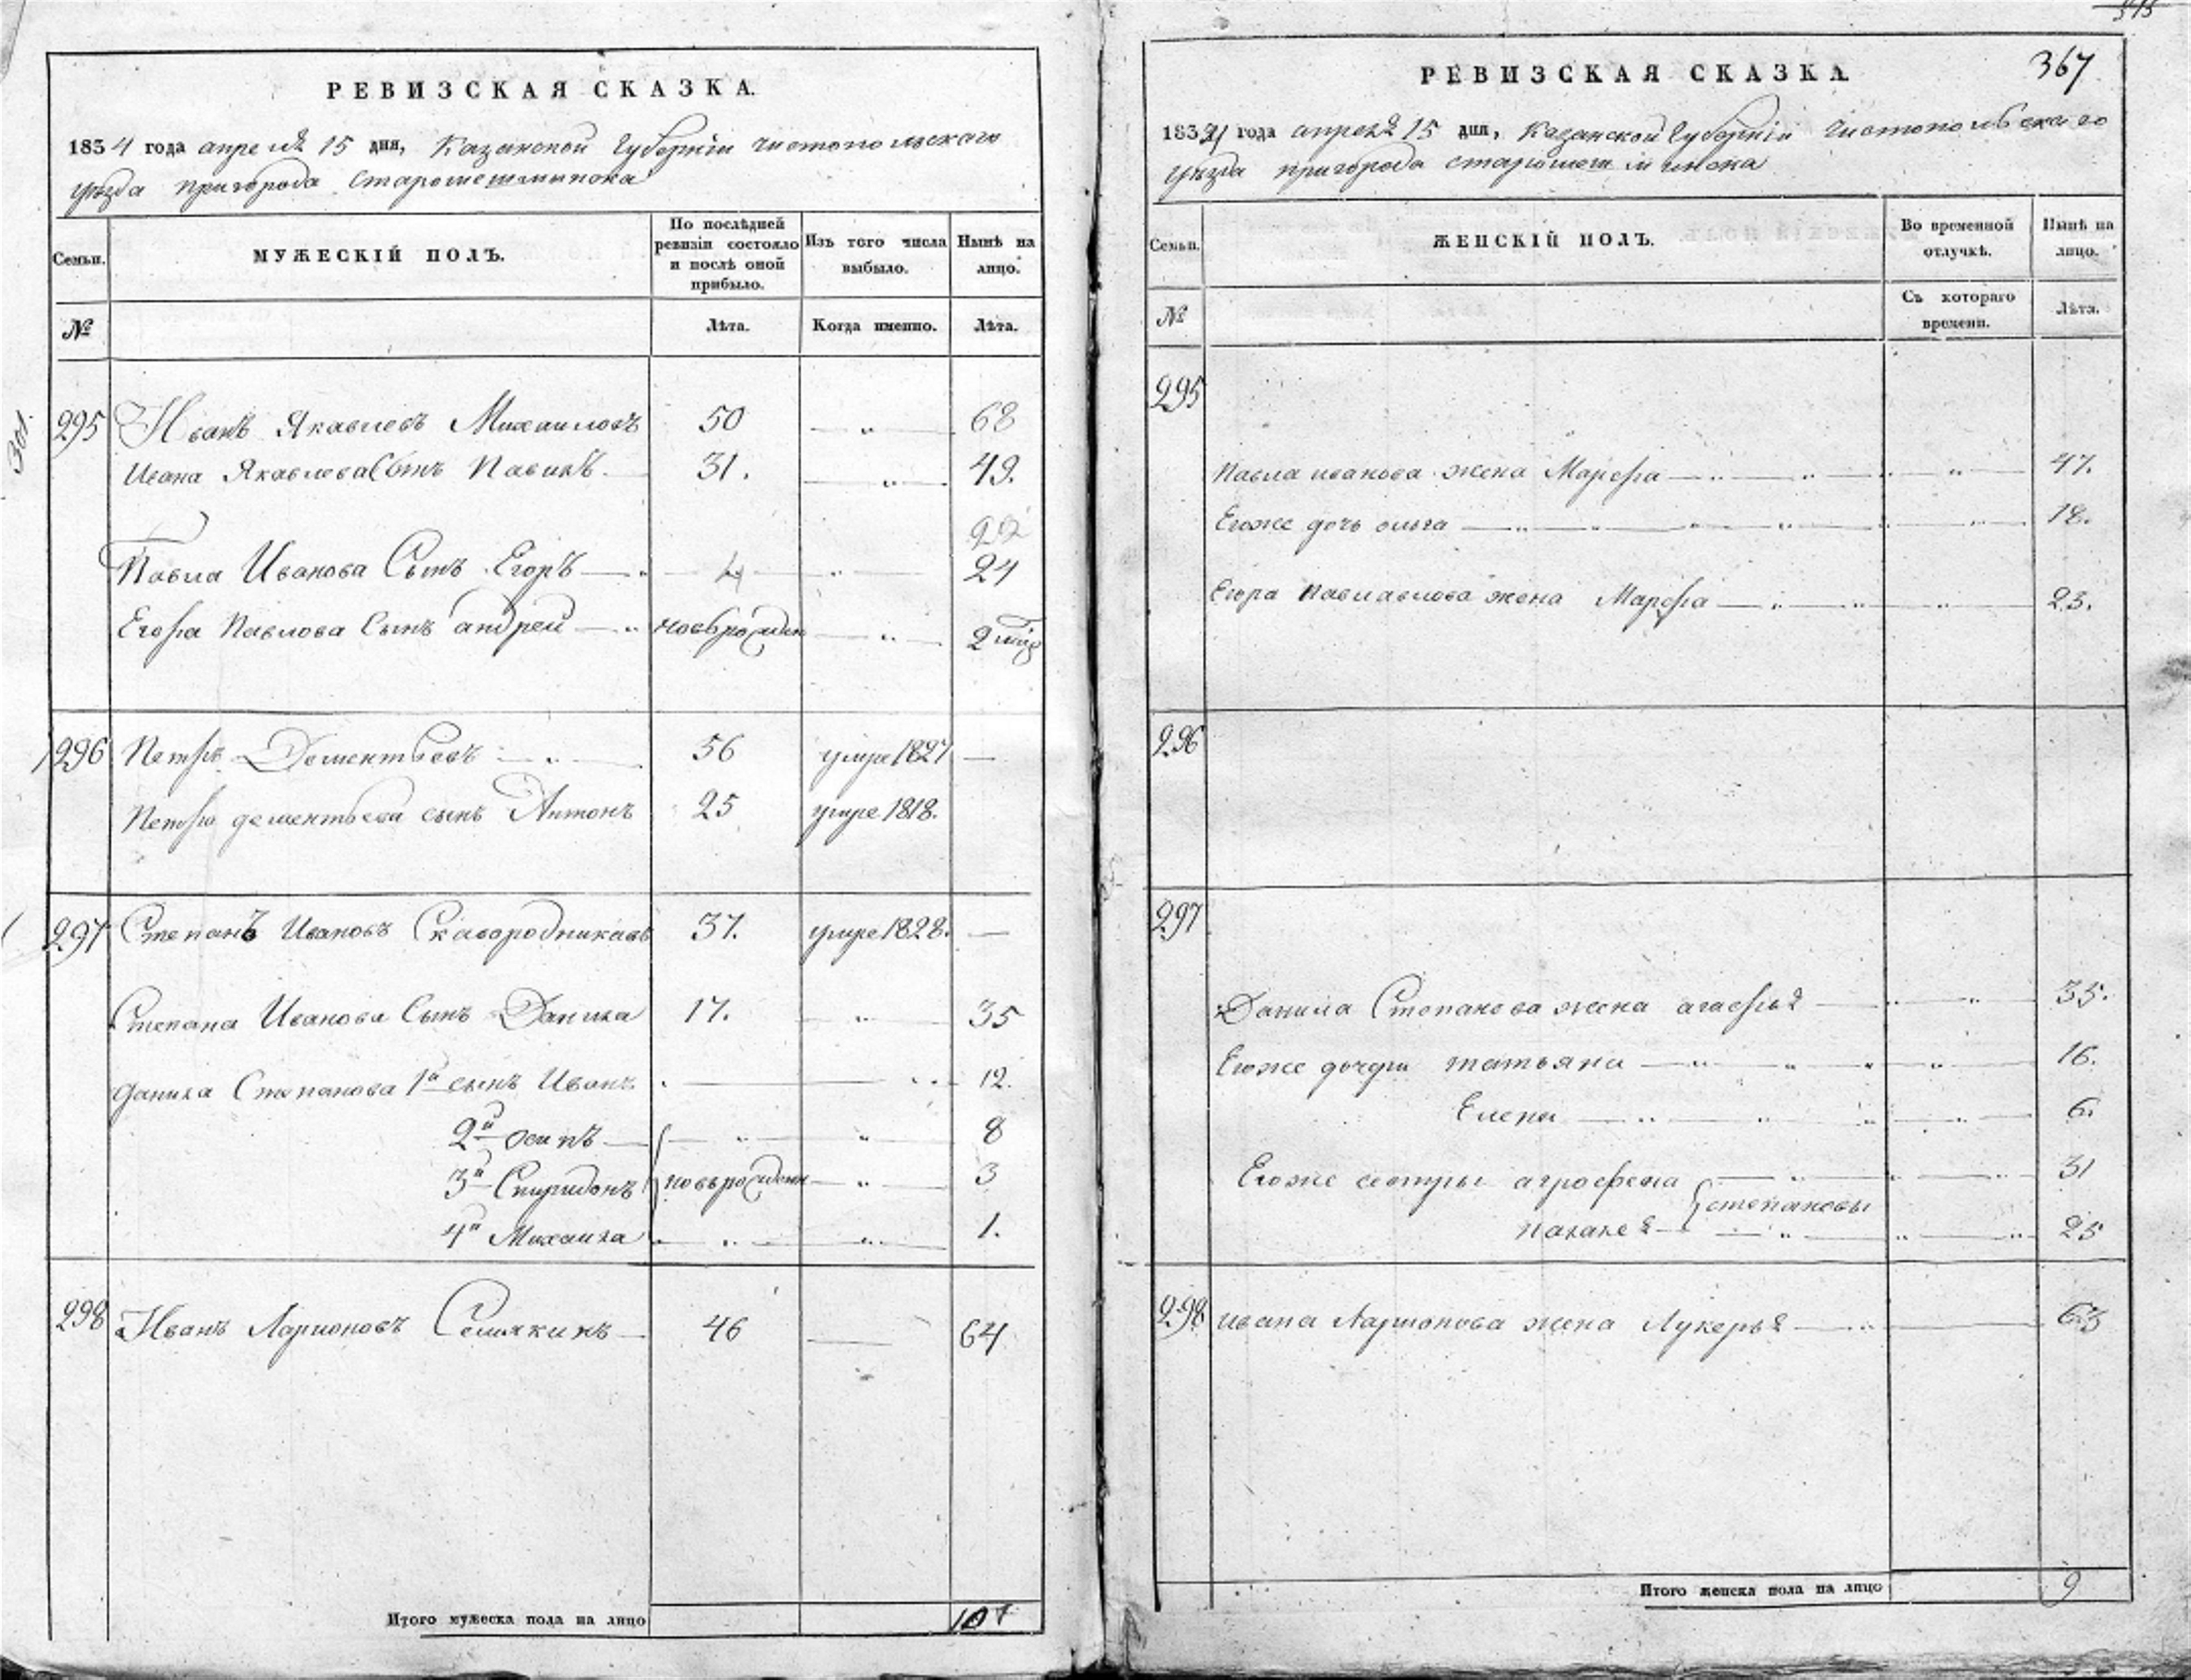 РЕВИЗСКАЯ СКАЗКА.
1834 года апреля 15 дня, Казанской Губернiи чистопольскаго
уѣзда пригорода Старошешминска
Семьи.
МУЖЕСКIЙ ПОЛЪ.
По послѣдней ревизiи состояло и послѣ оной прибыло.
Изъ того числа выбыло.
Нынѣ на лицо.
№
Лѣта.
Когда именно.
Лѣта.
301.
295 Иванъ Яковлевъ Михаиловъ 50 68
Ивана Яковлева Сынъ Павилъ 31. 49.
22
Павла Иванова Сынъ Егоръ 4 24
Егора Павлова Сынъ андрей новърожден 2
296 Петръ Дементьевъ 56 умре 1827 —
Петра дементьева сынъ Антонъ 25 умре 1818.
297 Степанъ Ивановъ Скавородникавъ 37. умре 1828. —
Степана Иванова Сынъ Данила 17. 35
Данила Степанова 1й сынъ Иванъ 12.
2й осипъ 8
3й Спиридонъ новърожден 3
4й Михаила 1.
298 Иванъ Ларионовъ Семякинъ 46 64
Итого мужеска пола на лицо 10
367
РЕВИЗСКАЯ СКАЗКА.
1834 года апреля 15 дня, Казанской Губернiи чистопольскаго
уѣзда пригорода старошешминска
Семьи.
ЖЕНСКIЙ ПОЛЪ.
Во временной отлучкѣ.
Нынѣ на лицо.
№
Съ котораго времени.
Лѣта.
295
Павла иванова жена Марфа 47.
Егоже дочь ольга 18.
Егора Павлавлова жена Марфа 23.
296
297
Данила Степанова жена агафья 35.
Егоже дочери татьяна 16.
Елена 6.
Егоже сестры агрофена 31
степановы
палагея 25
298 ивана Ларионова жена Лукерья 63
Итого женска пола на лицо 9